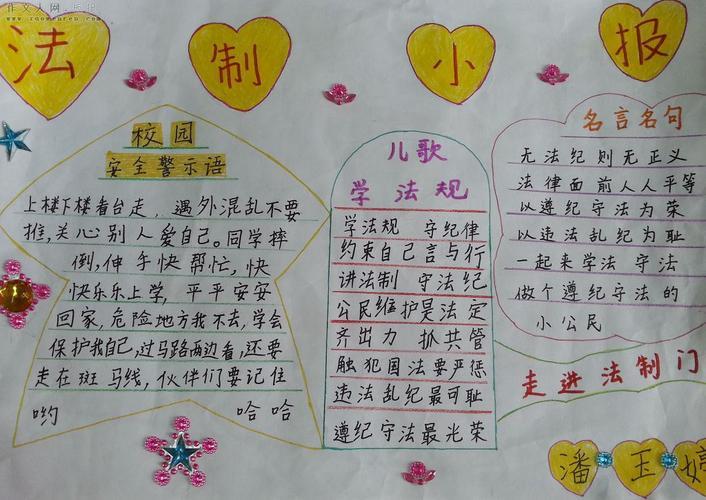 作文人网
法制小报
校园
安全警示语
上楼下楼看台走，遇外混乱不要
推，关心别人爱自己。同学摔
倒，伸手快帮忙，快
快乐乐上学，平平安安
回家，危险地方我不去，学会
保护我自己，过马路两边看，还要
走在斑马线，伙伴们要记住
哟 哈哈
儿歌
学法规
学法规 守纪律
约束自己言与行
讲法制 守法纪
公民维护是法定
齐出力 抓共管
触犯国法要严惩
违法乱纪最可耻
遵纪守法最光荣
名言名句
无法纪则无正义
法律面前人人平等
以遵纪守法为荣
以违法乱纪为耻
一起来学法守法
做个遵纪守法的
小公民
走进法制门
潘玉婷